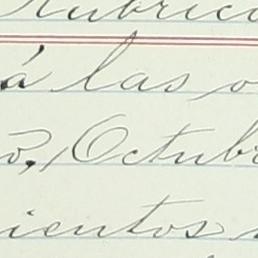 Rubrica
á las o
o, Octubr
ientos